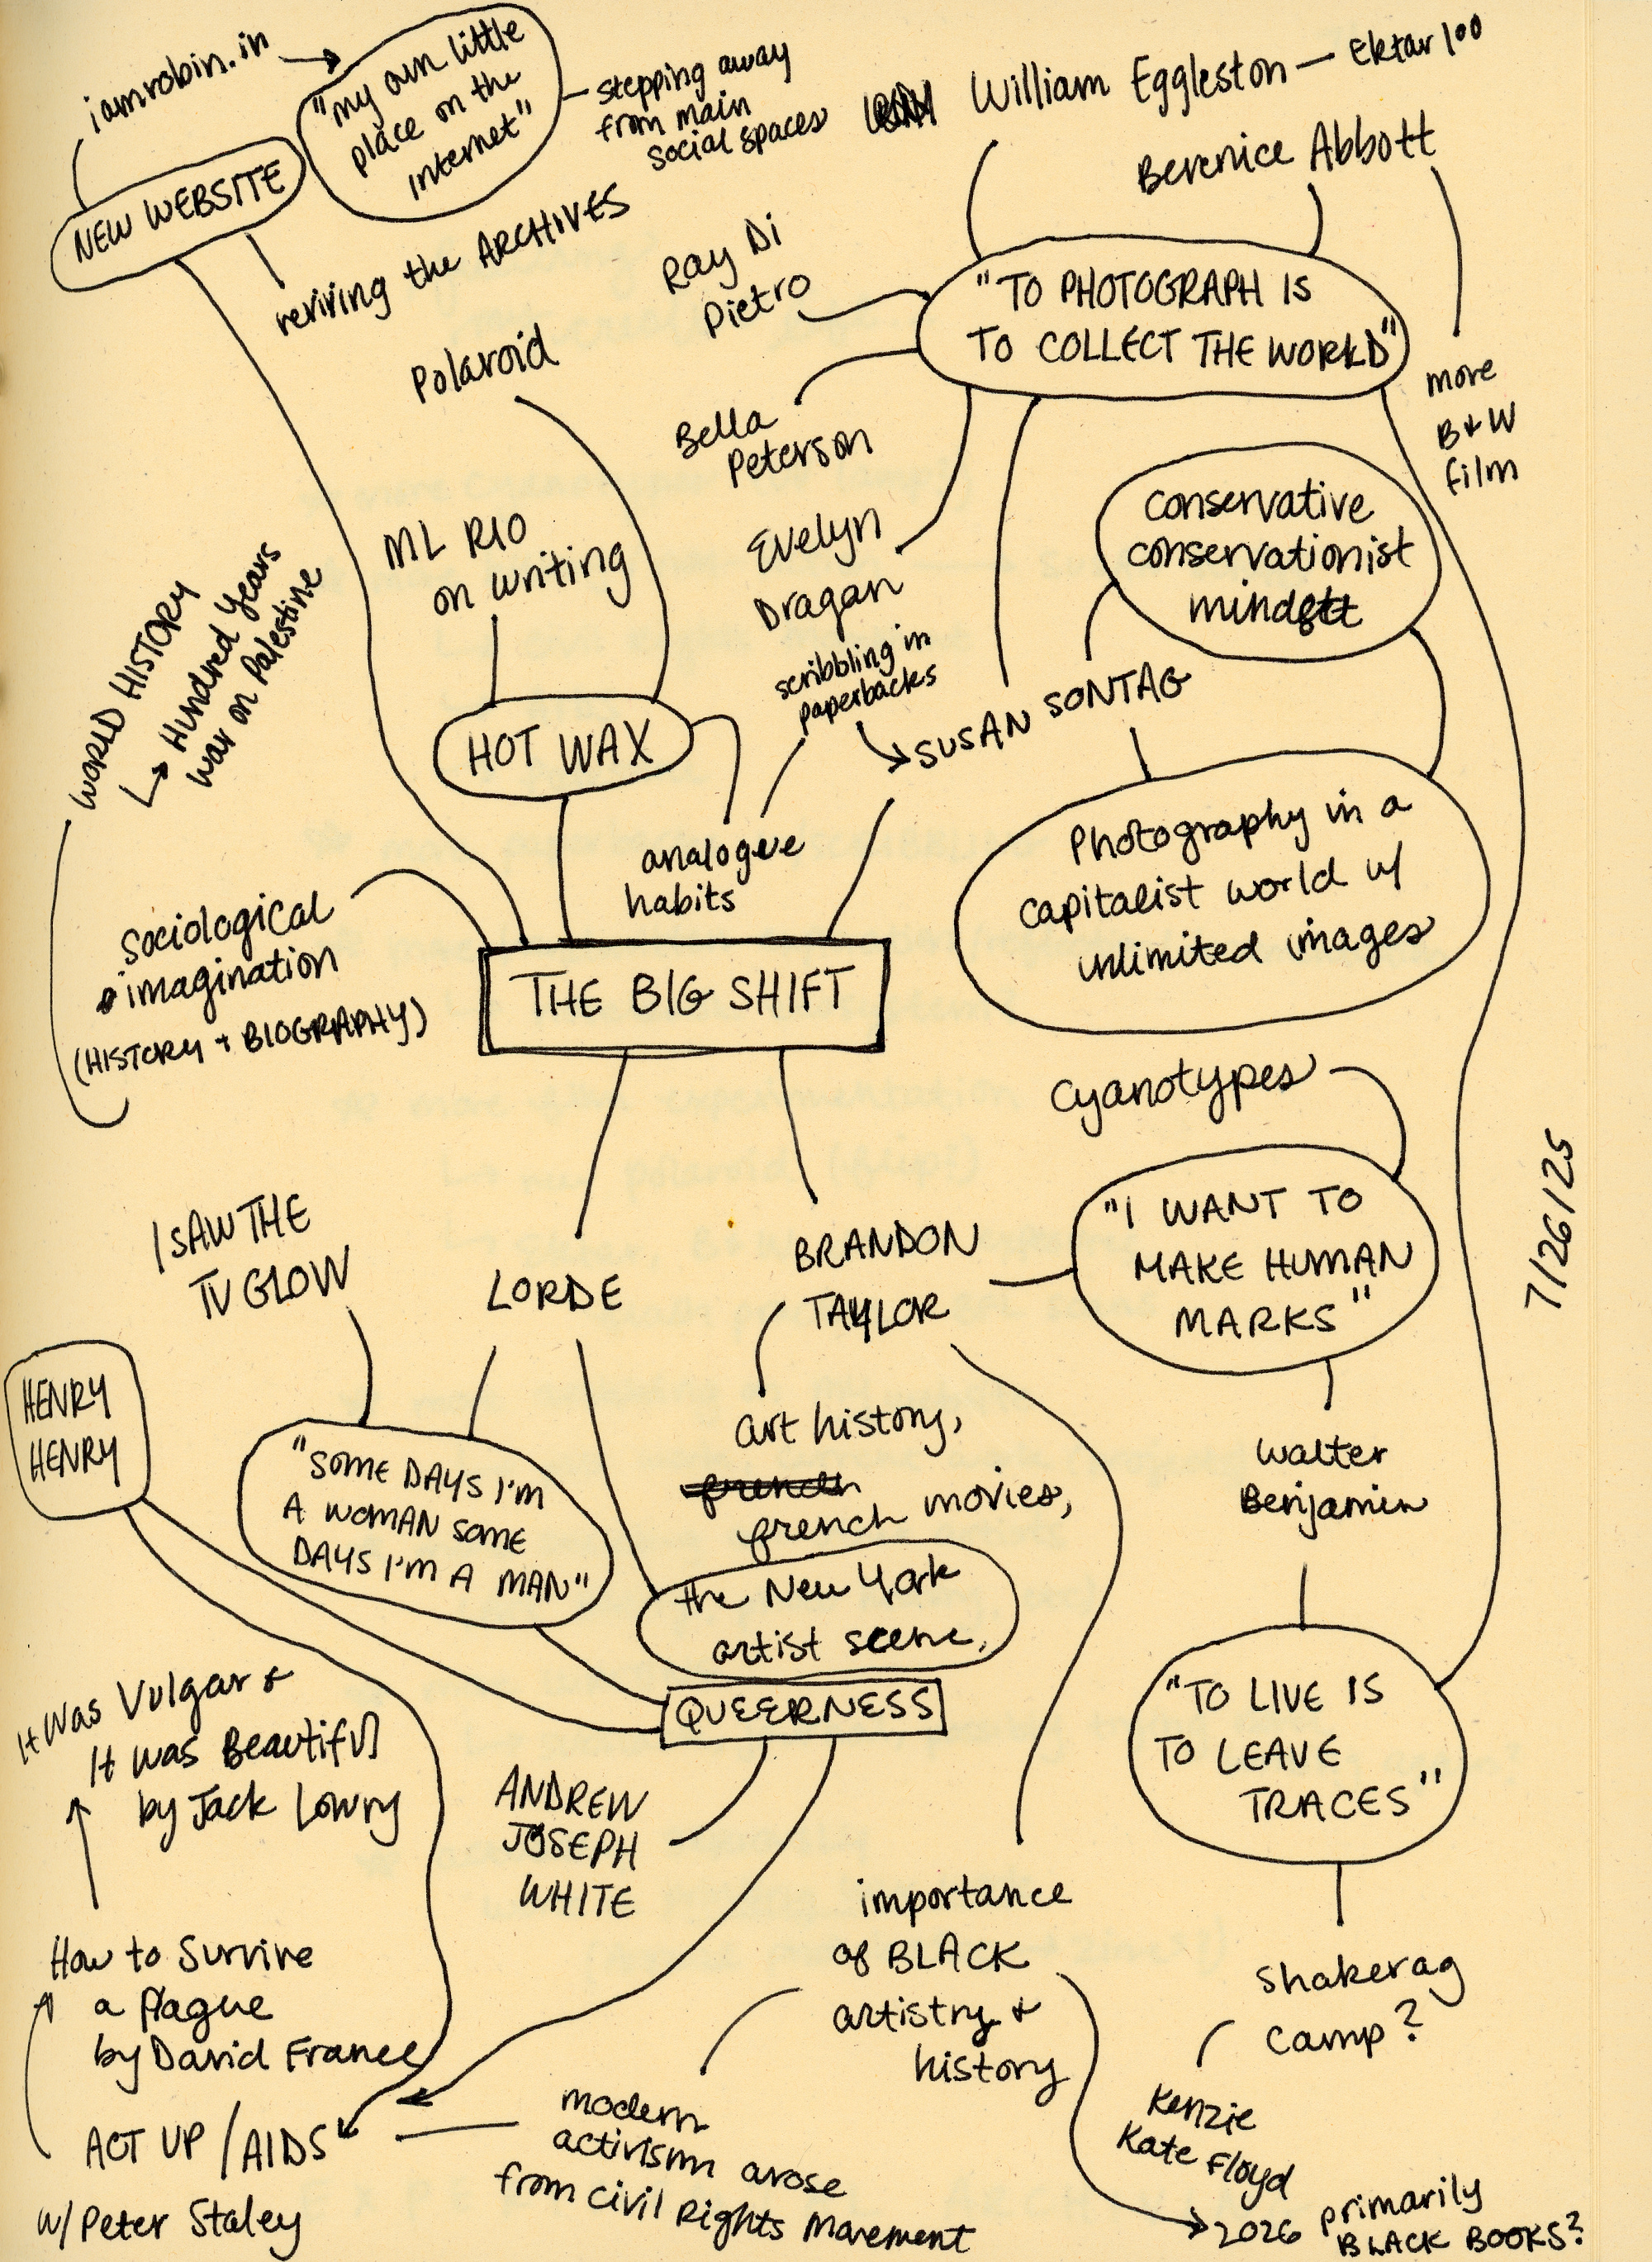 iamrobin.in
"my own little
place on the
internet"
stepping away
from main
social spaces
William Eggleston — Ektar 100
Berenice Abbott
NEW WEBSITE
reviving the ARCHIVES
Ray Di
Pietro
"TO PHOTOGRAPH IS
TO COLLECT THE WORLD"
more
B+W
film
Polaroid
Bella
Peterson
ML RIO
on writing
Evelyn
Dragan
conservative
conservationist
mindset
WORLD HISTORY
Hundred Years
War on Palestine
scribbling in
paperbacks
SUSAN SONTAG
HOT WAX
analogue
habits
Photography in a
capitalist world w/
unlimited images
Sociological
imagination
(HISTORY + BIOGRAPHY)
THE BIG SHIFT
Cyanotypes
7/26/25
I SAW THE
TV GLOW
LORDE
BRANDON
TAYLOR
"I WANT TO
MAKE HUMAN
MARKS"
HENRY
HENRY
"SOME DAYS I'M
A WOMAN SOME
DAYS I'M A MAN"
art history,
french
french movies,
the New York
artist scene,
Walter
Benjamin
QUEERNESS
"TO LIVE IS
TO LEAVE
TRACES"
It Was Vulgar &
It Was Beautiful
by Jack Lowry
ANDREW
JOSEPH
WHITE
importance
of BLACK
artistry &
history
Shakerag
Camp?
How to Survive
a Plague
by David France
Kenzie
Kate Floyd
ACT UP / AIDS
w/ Peter Staley
modern
activism arose
from Civil Rights Movement
2026 primarily
BLACK BOOKS?